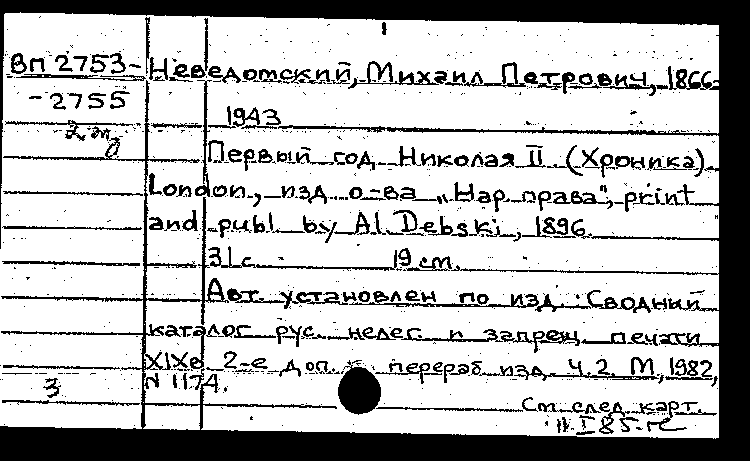 Вп 2753- Неведомский, Михаил Петрович, 1866-
-2755 1943
2 эк
Первый год Николая II (Хроника).
London, изд. о-ва „Нар. права", print
and publ. by Al. Debski, 1896.
31 с. 19 см.
Авт. установлен по изд.: Сводный
каталог рус. нелег. и запрещ. печати
XIXв. 2-е доп. и перераб. изд. Ч.2. М., 1982,
N 1174.
3
См. след. карт.